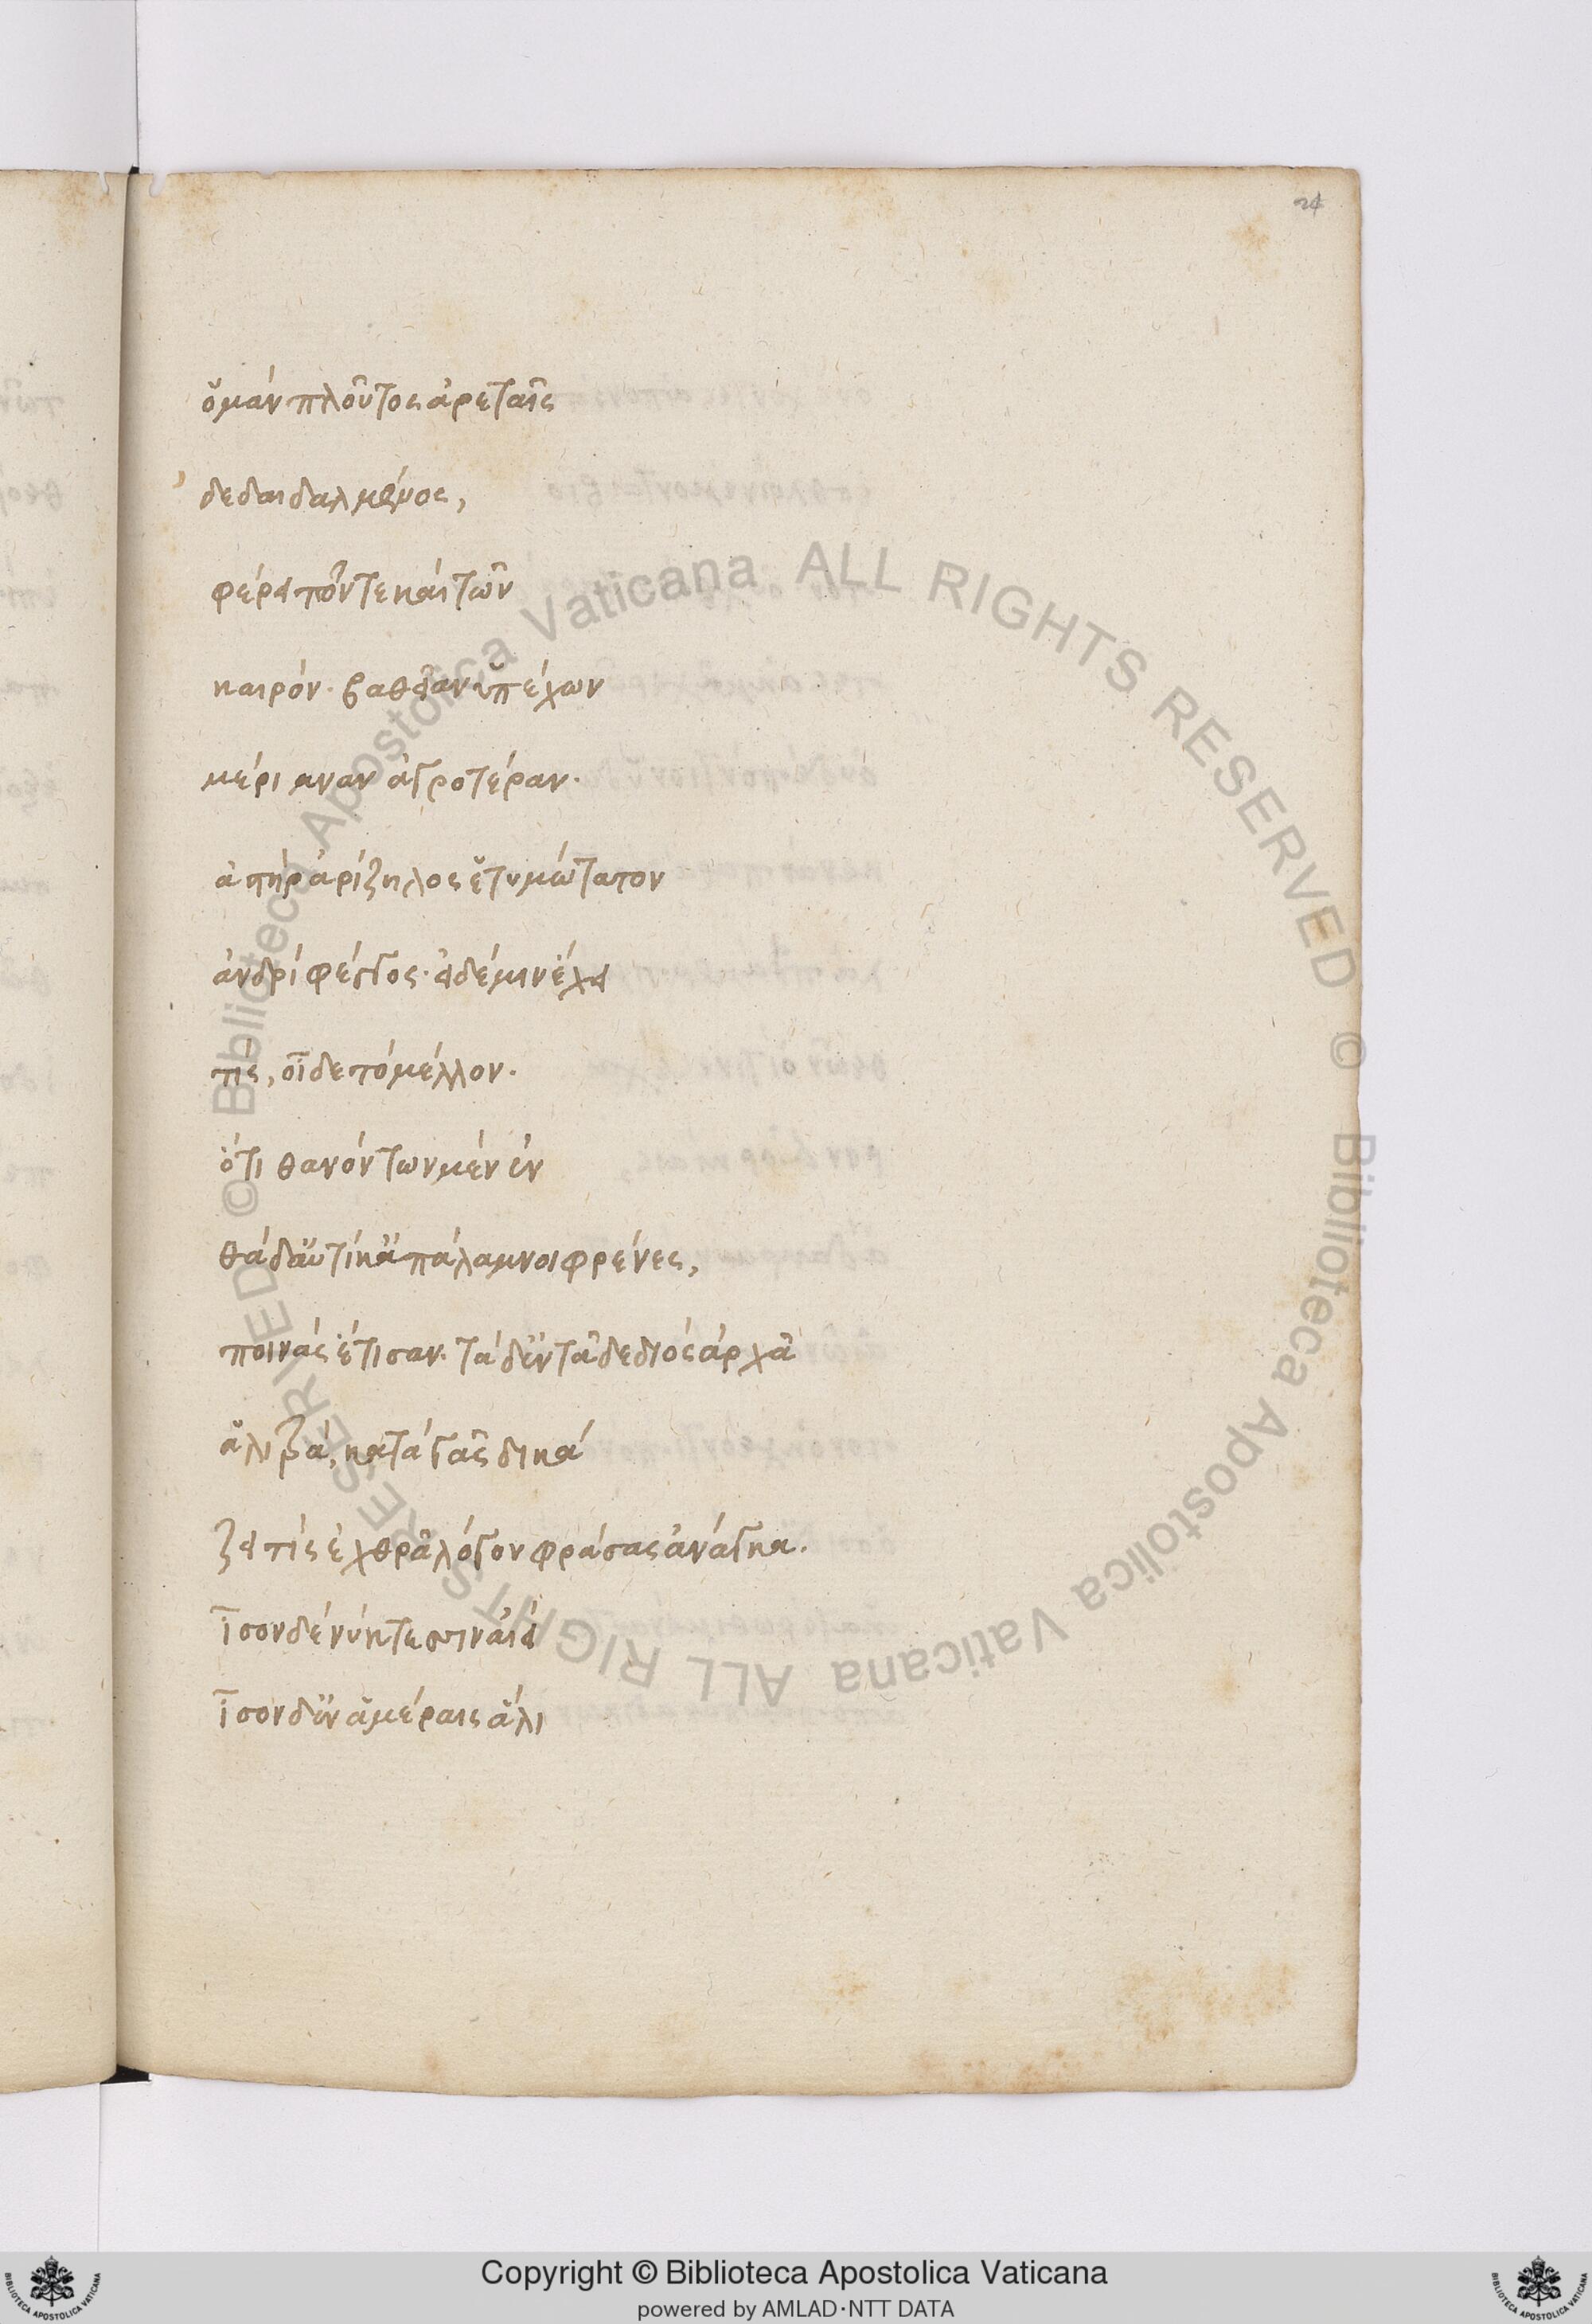 24
ὅ μὰν πλοῦτος ἀρεταῖς
δεδαιδαλμένος,
φέρει τῶν τε καὶ τῶν
καιρόν· βαθεῖαν ὑπέχων
μέριμναν ἀγροτέραν·
ἀστὴρ ἀρίζηλος ἔτυμώτατον
ἀνδρὶ φέγγος· εἰ δέ μιν ἔχει
τὶς, οἶδε τὸ μέλλον·
ὅτι θανόντων μὲν ἐν
θάδ' αὐτίκ' ἀπάλαμνοι φρένες,
ποινὰς ἔτισαν· τὰ δ' ἐν τᾷδε διὸς ἀρχᾷ
ἀλιτρὰ, κατὰ γᾶς δικά
ζει τὶς ἐχθρᾷ λόγον φράσας ἀνάγκα.
ἶσον δὲ νύκτεσσιν αἰεὶ
ἶσον δ' ἐν ἁμέραις ἅλι
© Biblioteca Apostolica Vaticana ALL RIGHTS RESERVED © Biblioteca Apostolica Vaticana ALL RIGHTS RESERVED
Copyright © Biblioteca Apostolica Vaticana
powered by AMLAD·NTT DATA
BIBLIOTECA APOSTOLICA VATICANA
BIBLIOTECA APOSTOLICA VATICANA